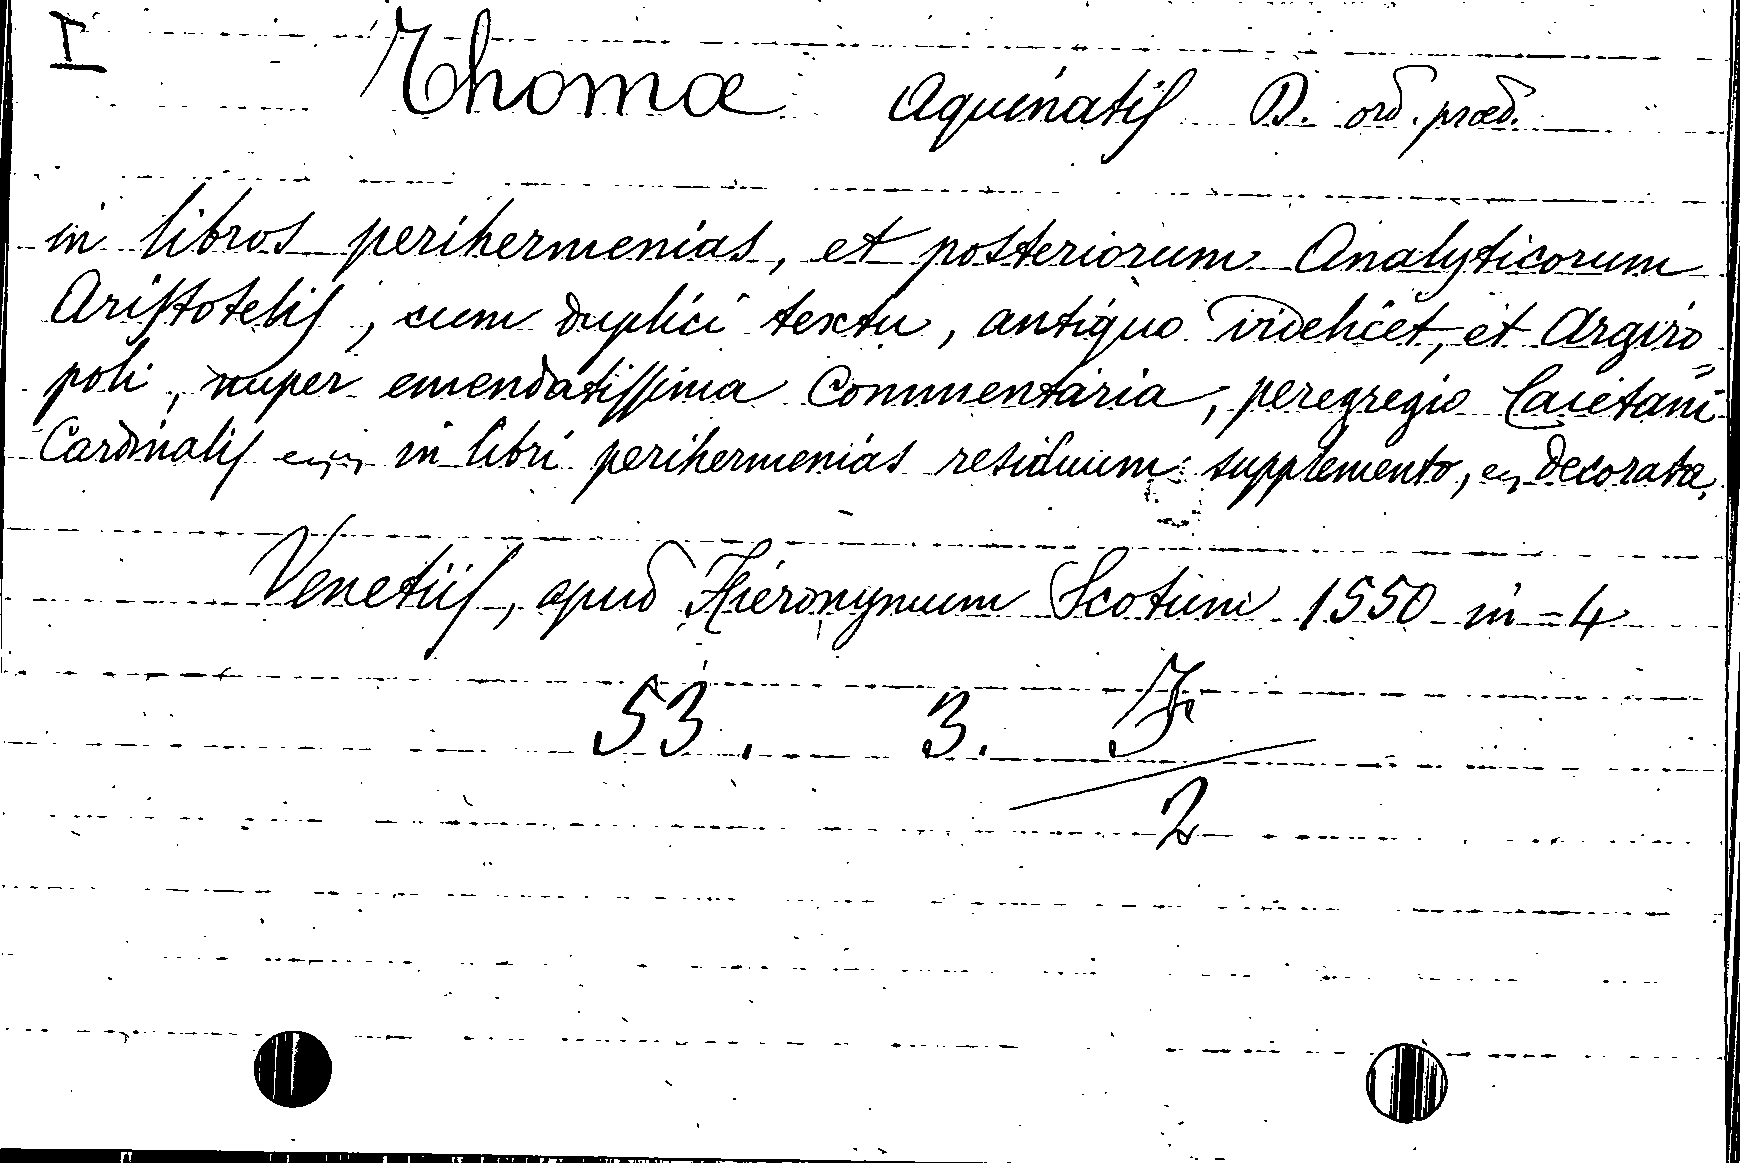 I
Thomæ Aquinatis D. ord. præd.
in libros perihermenias, et posteriorum Analyticorum
Aristotelis, cum duplici textu, antiquo videlicet, et Argiro
poli, nuper emendatissima Commentaria, peregregio Caietani
Cardinalis in libri perihermenias residuum supplemento, decorata.
Venetiis, apud Hieronymum Scotum 1550 in=4
53. 3.
2